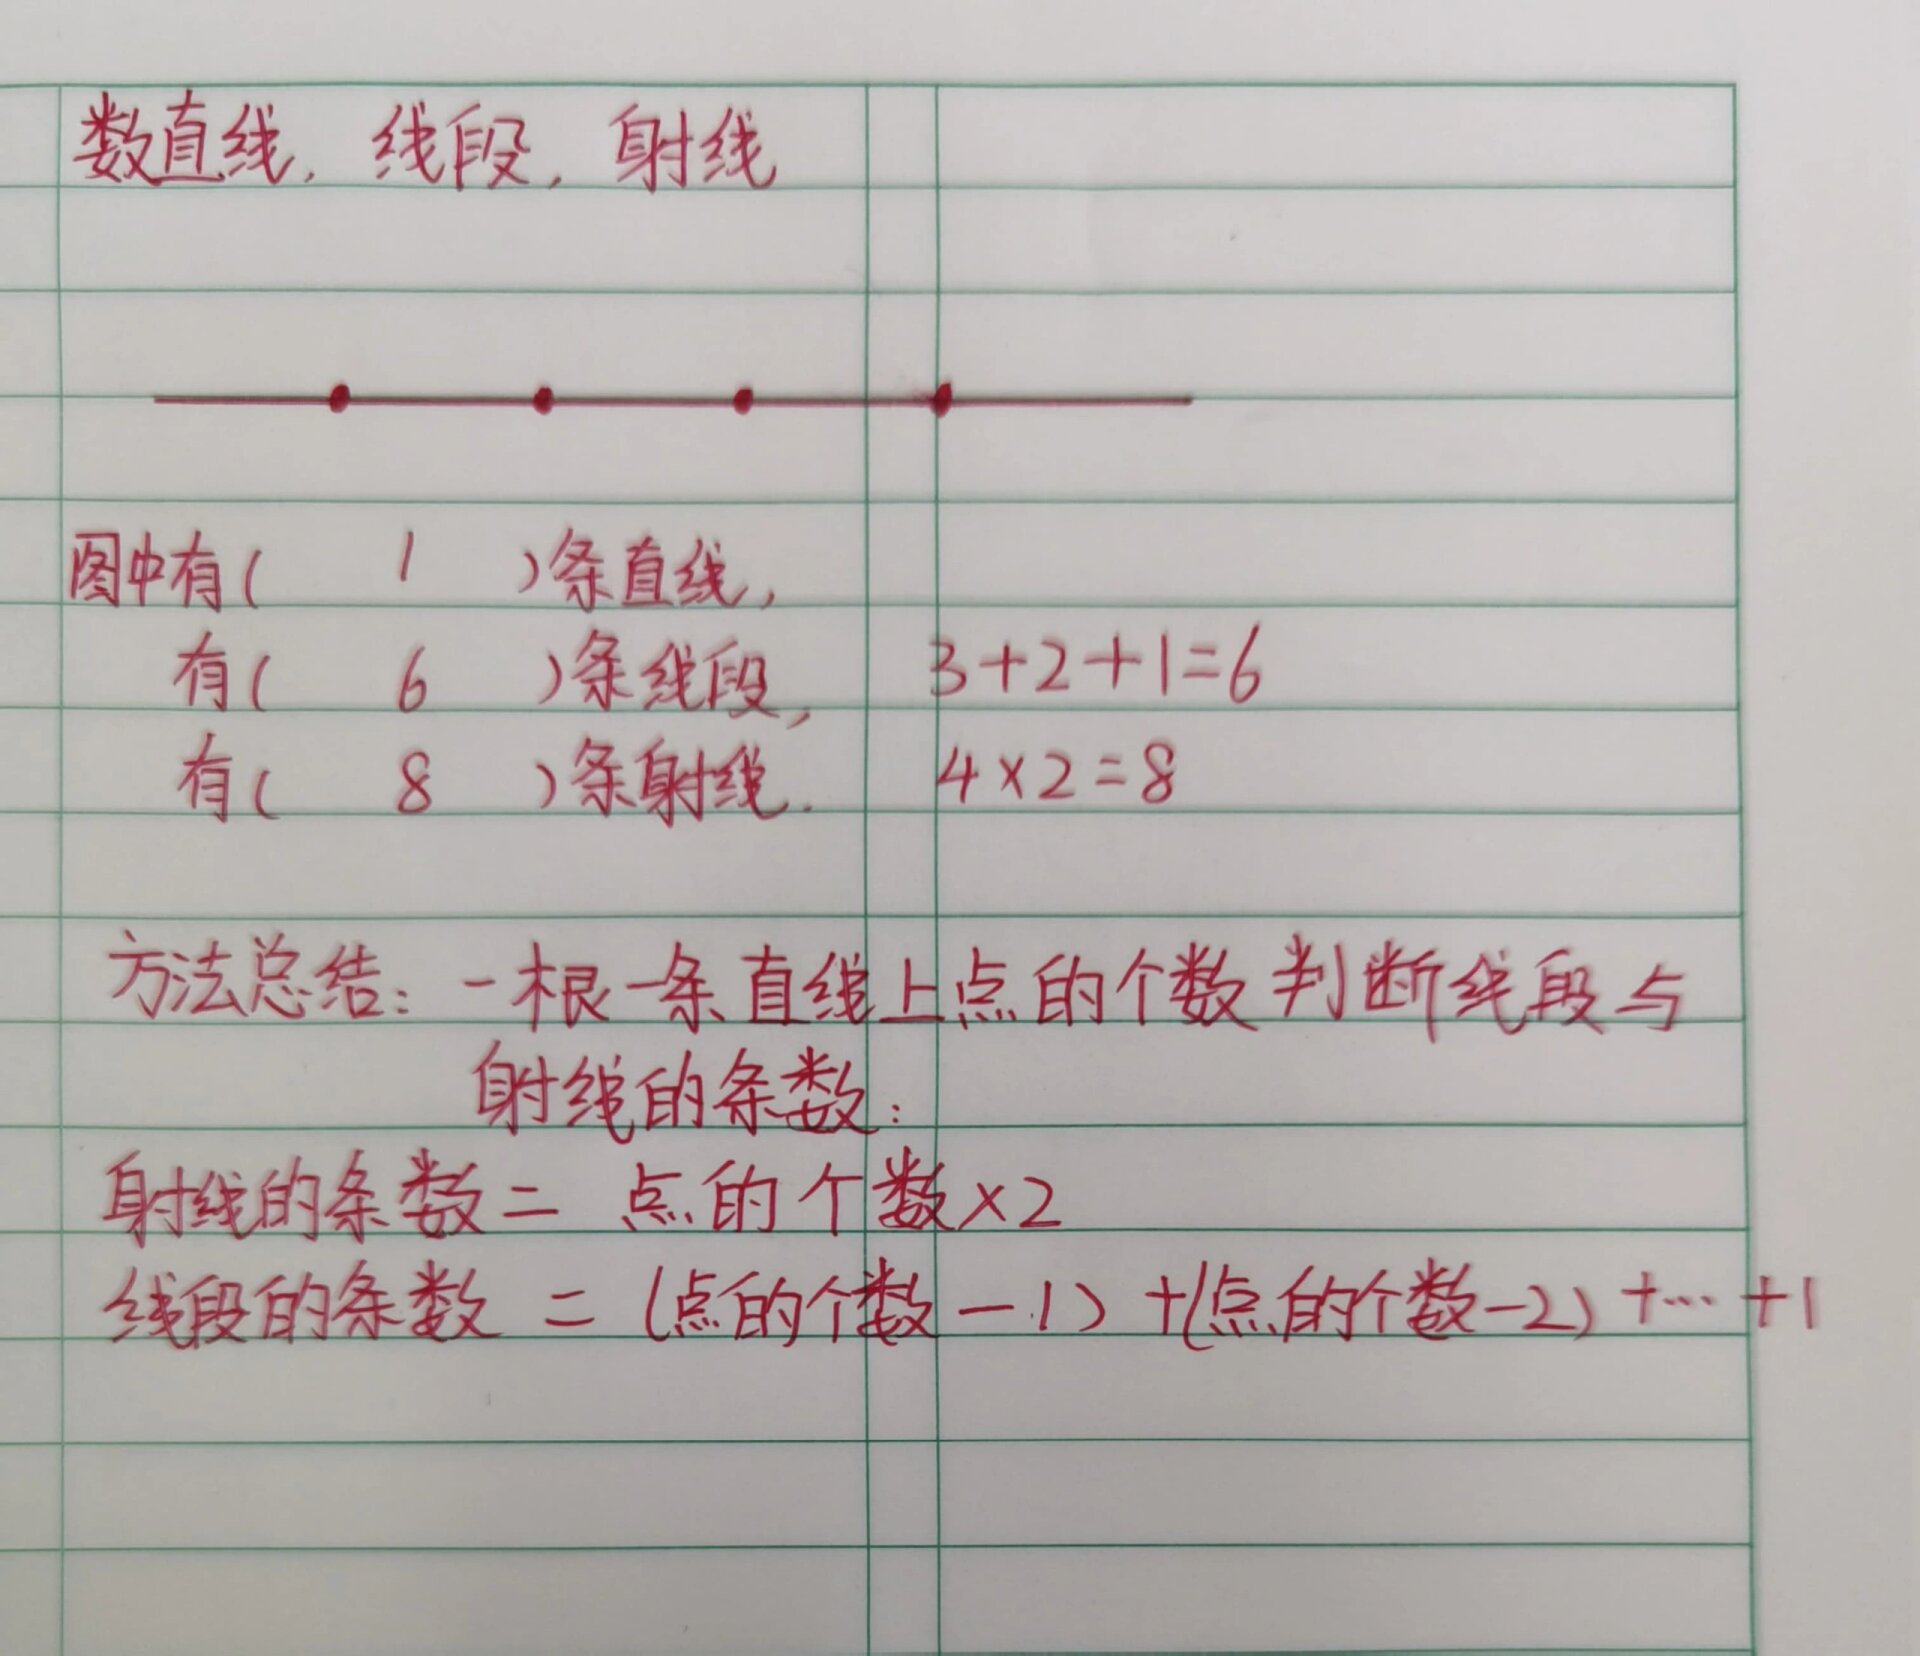 数直线, 线段, 射线
图中有( 1 )条直线,
有( 6 )条线段, 3+2+1=6
有( 8 )条射线. 4×2=8
方法总结: 一根一条直线上点的个数判断线段与
射线的条数:
射线的条数= 点的个数×2
线段的条数 = (点的个数-1)+(点的个数-2)+…+1